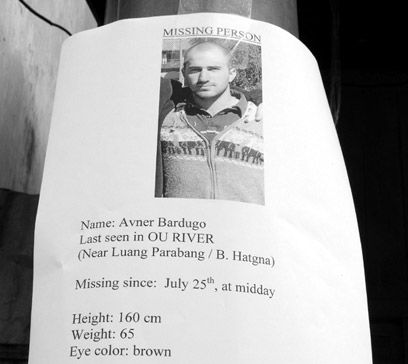 MISSING PERSON
Name: Avner Bardugo
Last seen in OU RIVER
(Near Luang Parabang / B. Hatgna)
Missing since: July 25th, at midday
Height: 160 cm
Weight: 65
Eye color: brown